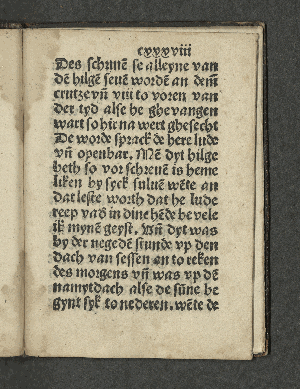 cxxxviii
Des schrivē se alleyne van
dē hilgē sevē wordē an dem̄
crutze vn̄ viii to voren van
der tyd alse he ghevangen
wart so hir na wert ghesecht
De worde sprack de here lude
vn̄ openbar. Mē dyt hilge
beth so vor schreuē is heme
liken by syck suluē wēte an
dat leste worth dat he lude
reep vad̓ in dine hēde bevele
ik mynē geyst. Vn̄ dyt was
by der negedē stunde vp den
dach van sessen an to reken
des morgens vn̄ was vp dē
namytdach alse de sūne be
gynt syk to nederen. wēte de